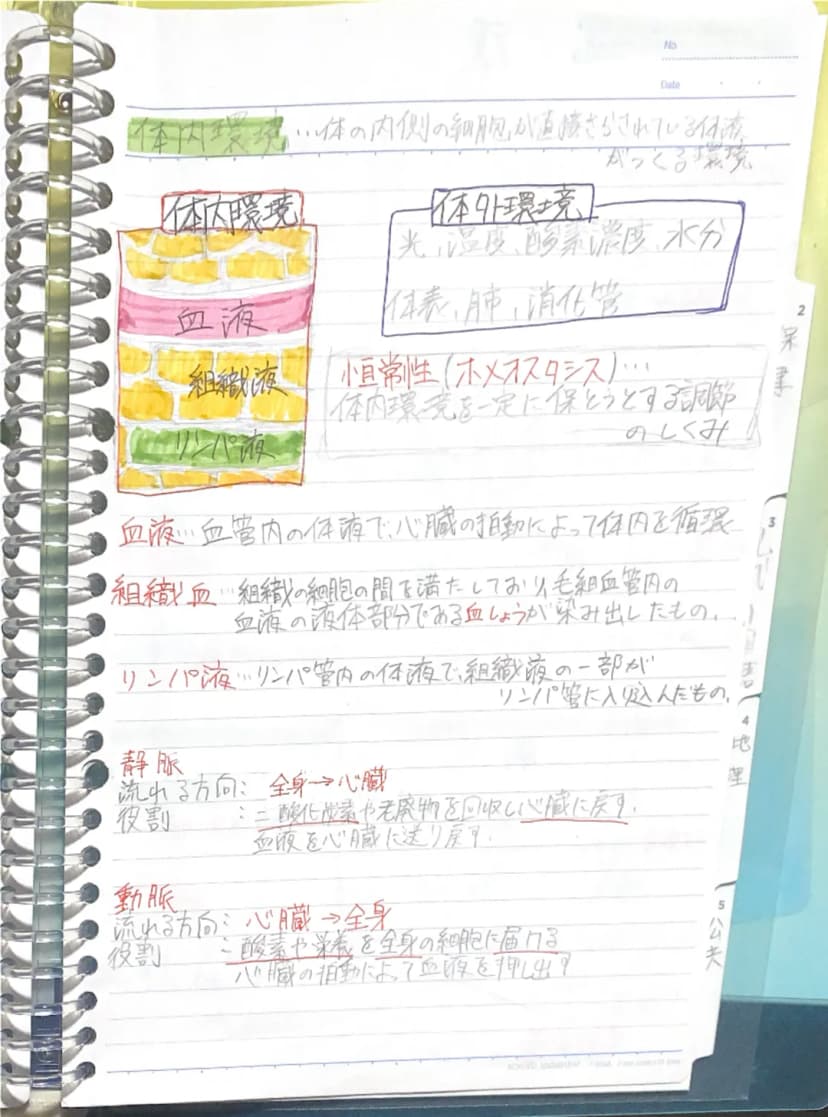 No
Date
体内環境…体の内側の細胞が直接さらされている体液
がつくる環境
体内環境
血液
組織液
リンパ液
体外環境
光、温度、酸素濃度、水分
体表、肺、消化管
恒常性(ホメオスタシス)…
体内環境を一定に保とうとする調節
のしくみ
血液…血管内の体液で、心臓の拍動によって体内を循環
組織血…組織の細胞の間を満たしており、毛細血管内の
血液の液体部分である血しょうが染み出したもの。
リンパ液…リンパ管内の体液で、組織液の一部が
リンパ管に入り込んだもの。
静脈
流れる方向: 全身→心臓
役割 :二酸化炭素や老廃物を回収し心臓に戻す.
血液を心臓に送り戻す.
動脈
流れる方向: 心臓→全身
役割 :酸素や栄養を全身の細胞に届ける
心臓の拍動によって血液を押し出す
2
3
4
地理
5
公共